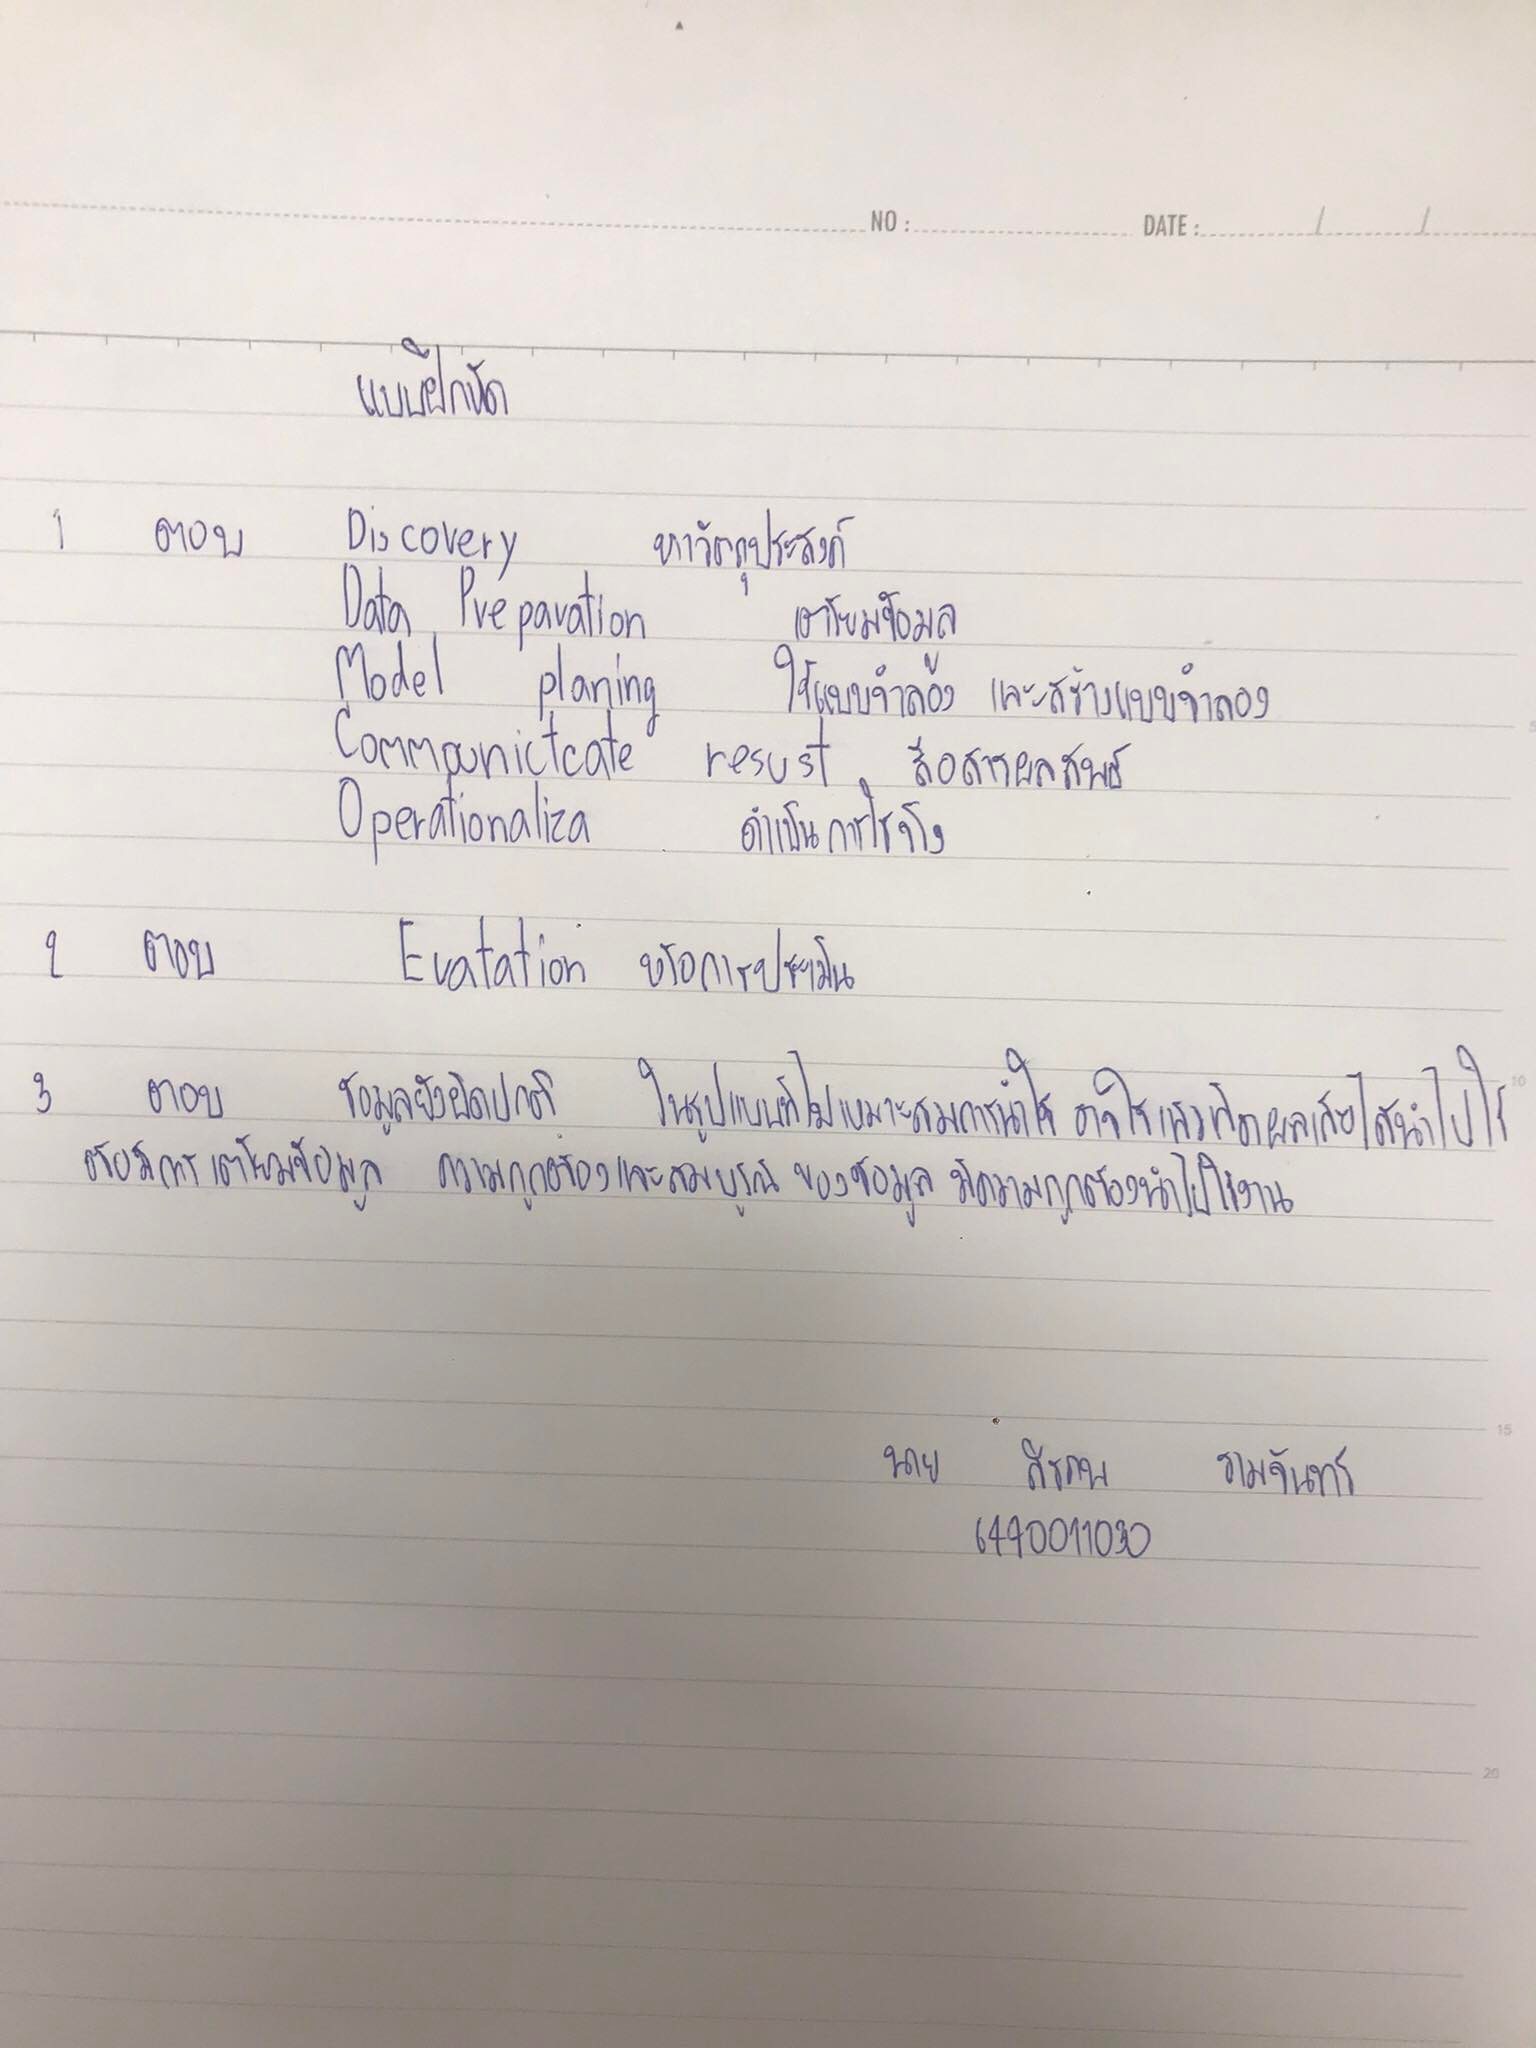 NO : DATE : / /
แบบฝึกหัด
1 ตอบ Discovery หาวัตถุประสงค์
Data Preparation เตรียมข้อมูล
Model planing ใช้แบบจำลอง และสร้างแบบจำลอง
resust สื่อสารผลลัพธ์
5
Operationaliza ดำเนินการใช้จริง
2 ตอบ Evatation หรือการประเมิน
3 ตอบ ข้อมูลยังผิดปกติ ในรูปแบบที่ไม่เหมาะสมการนำใช้ ผลเสียได้นำไปใช้
10
ต้องมีการเตรียมข้อมูล ความถูกต้องและสมบูรณ์ ของข้อมูล มีความถูกต้องนำไปใช้งาน
15
นาย รามจันทร์
6440011030
20